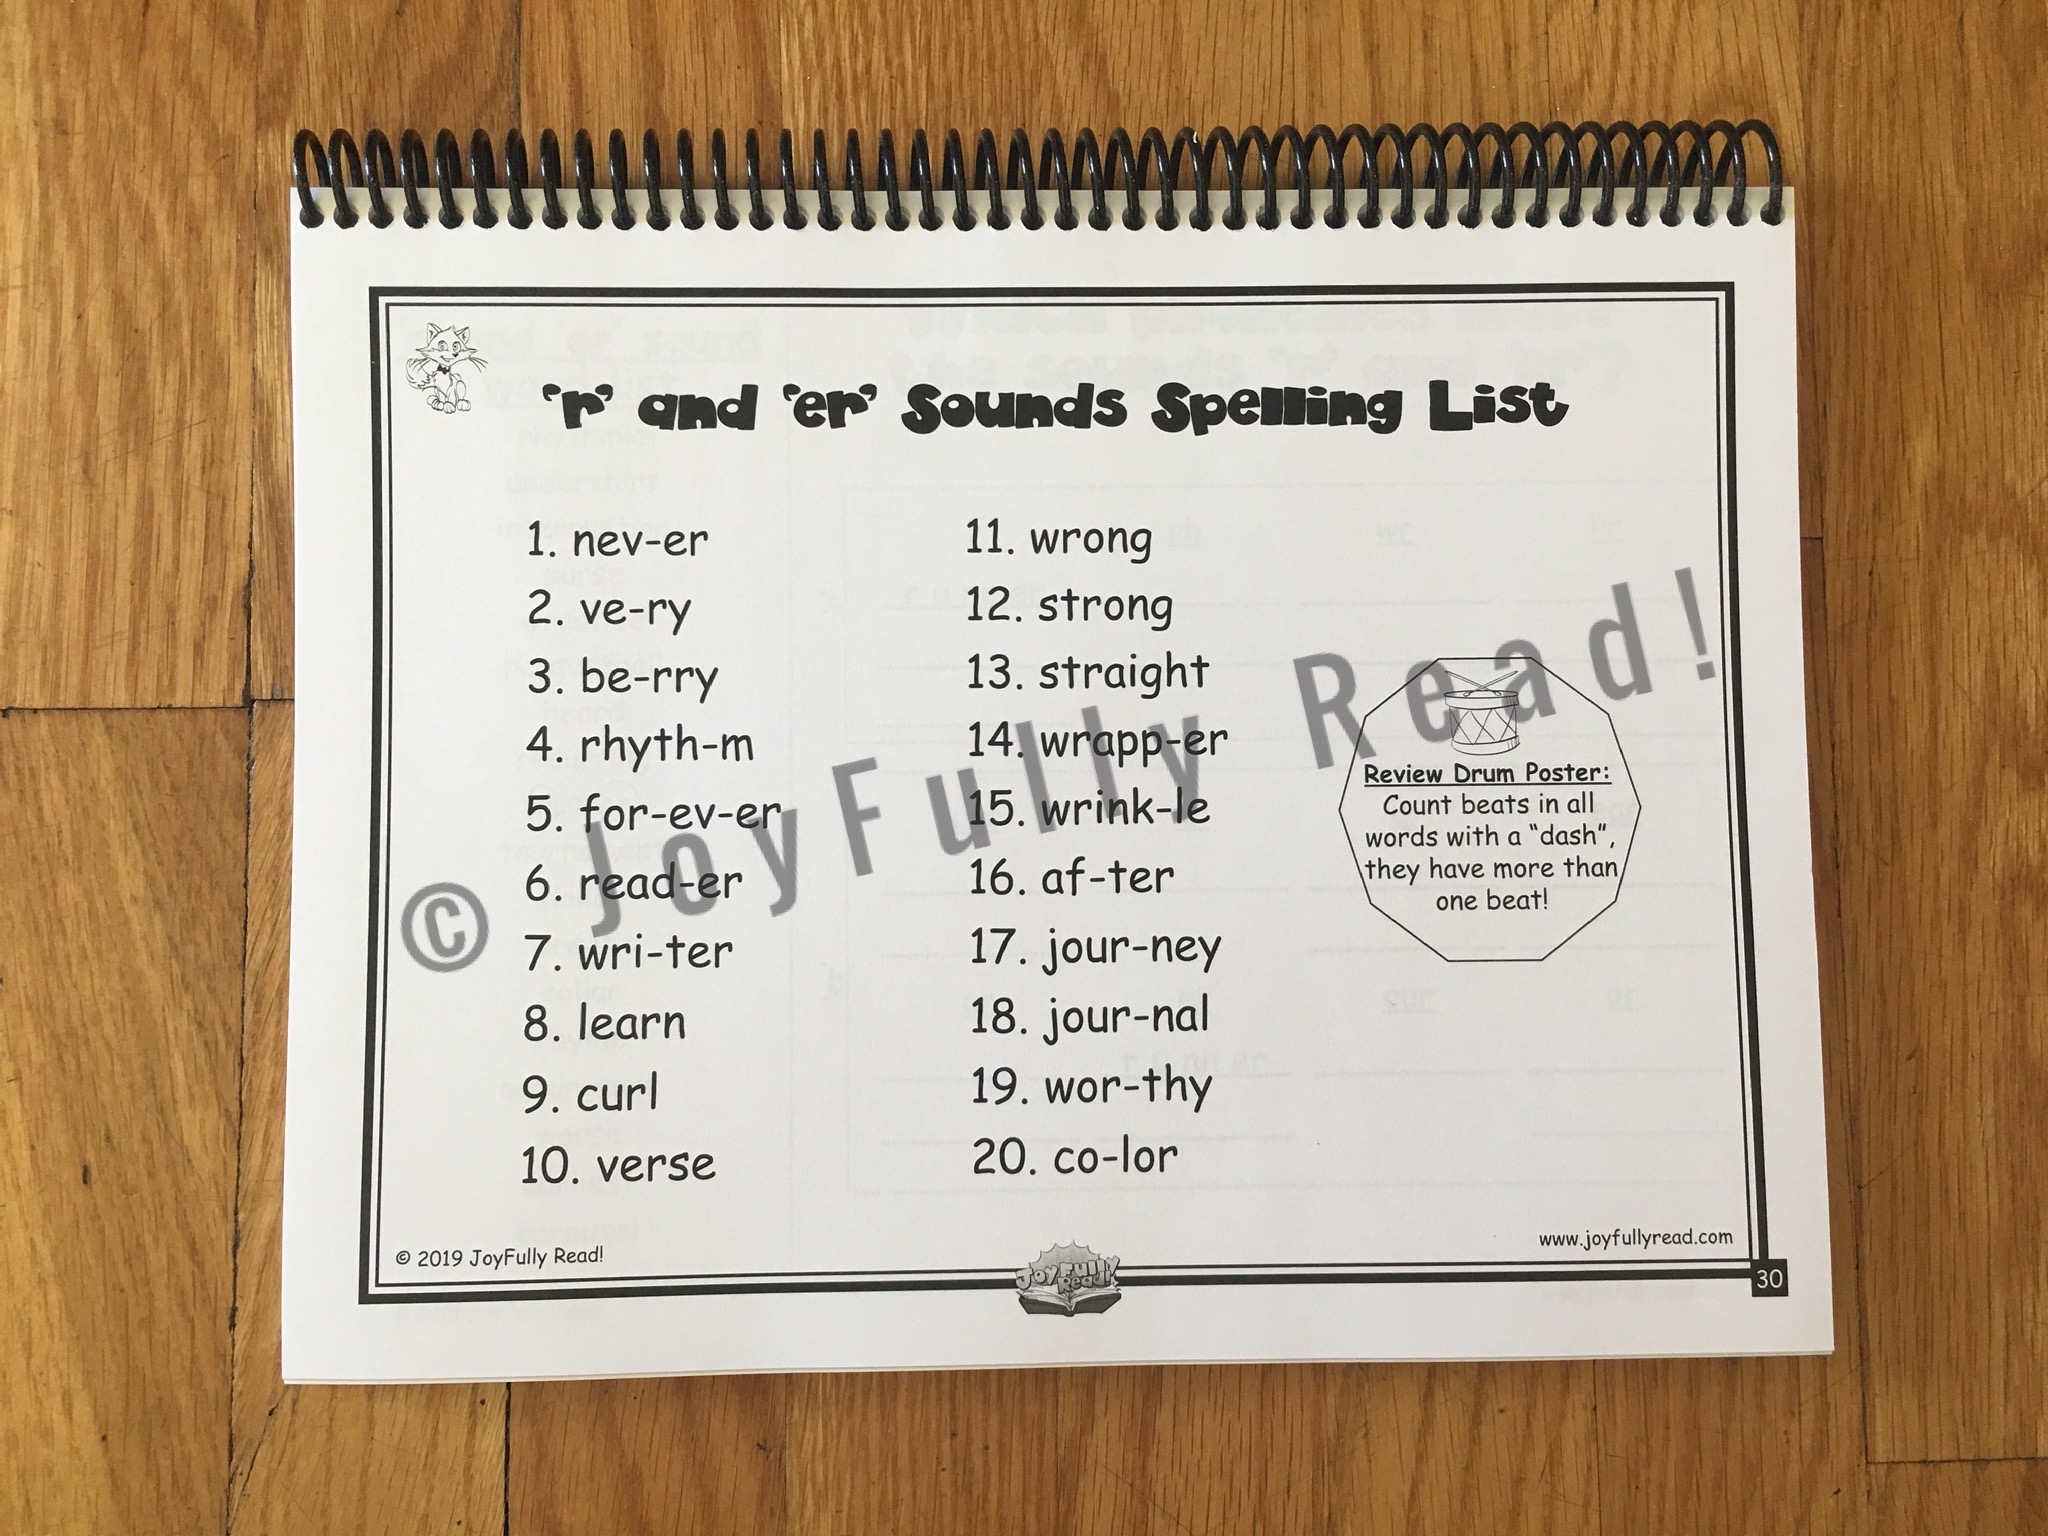 'r' and 'er' Sounds Spelling List
1. nev-er
2. ve-ry
3. be-rry
4. rhyth-m
5. for-ev-er
6. read-er
7. wri-ter
8. learn
9. curl
10. verse
11. wrong
12. strong
13. straight
14. wrapp-er
15. wrink-le
16. af-ter
17. jour-ney
18. jour-nal
19. wor-thy
20. co-lor
Review Drum Poster:
Count beats in all
words with a "dash",
they have more than
one beat!
© JoyFully Read!
© 2019 JoyFully Read!
JoyFully
Read!
www.joyfullyread.com
30